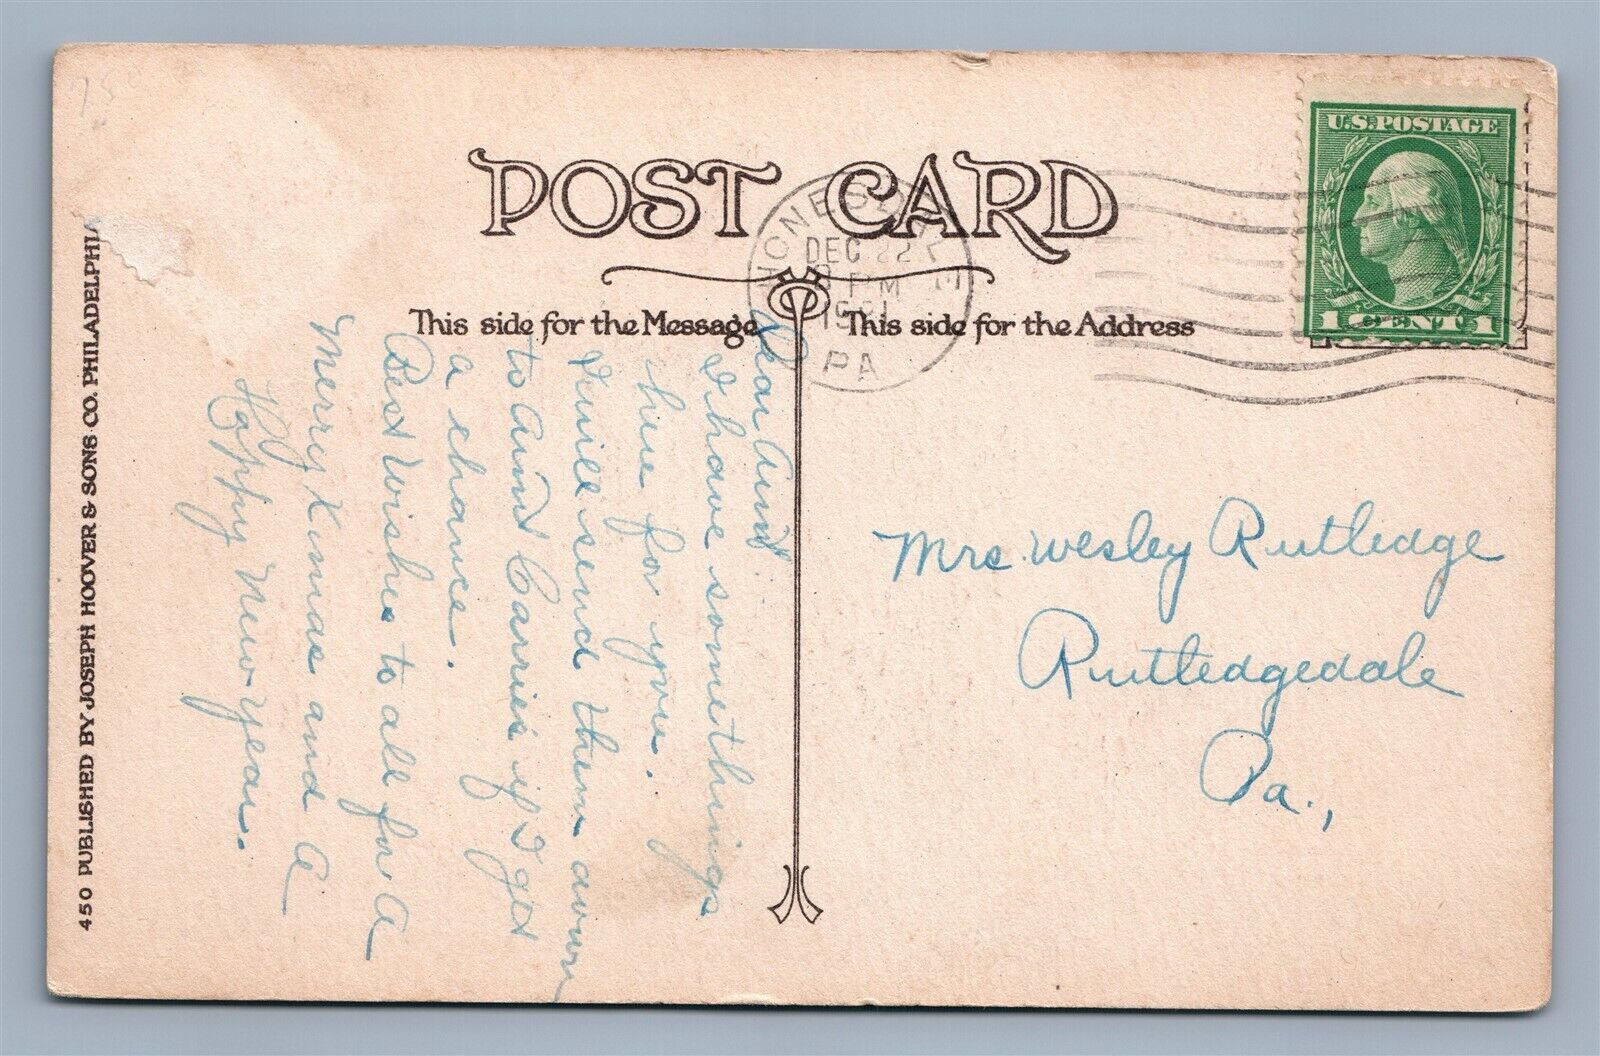 POST CARD
This side for the Message
This side for the Address
U.S.POSTAGE
1 CENT 1
HONESDALE
DEC 22
PM
PA
Dear Aunt:
I have somethings
hire for you.
I will send them down
to Aunt Carries if I get
a chance.
Best Wishes to all for A
Merry Xmas and A
Happy New year.
Mrs. Wesley Rutledge
Rutledgedale
Pa.,
450 PUBLISHED BY JOSEPH HOOVER & SONS CO. PHILADELPHIA